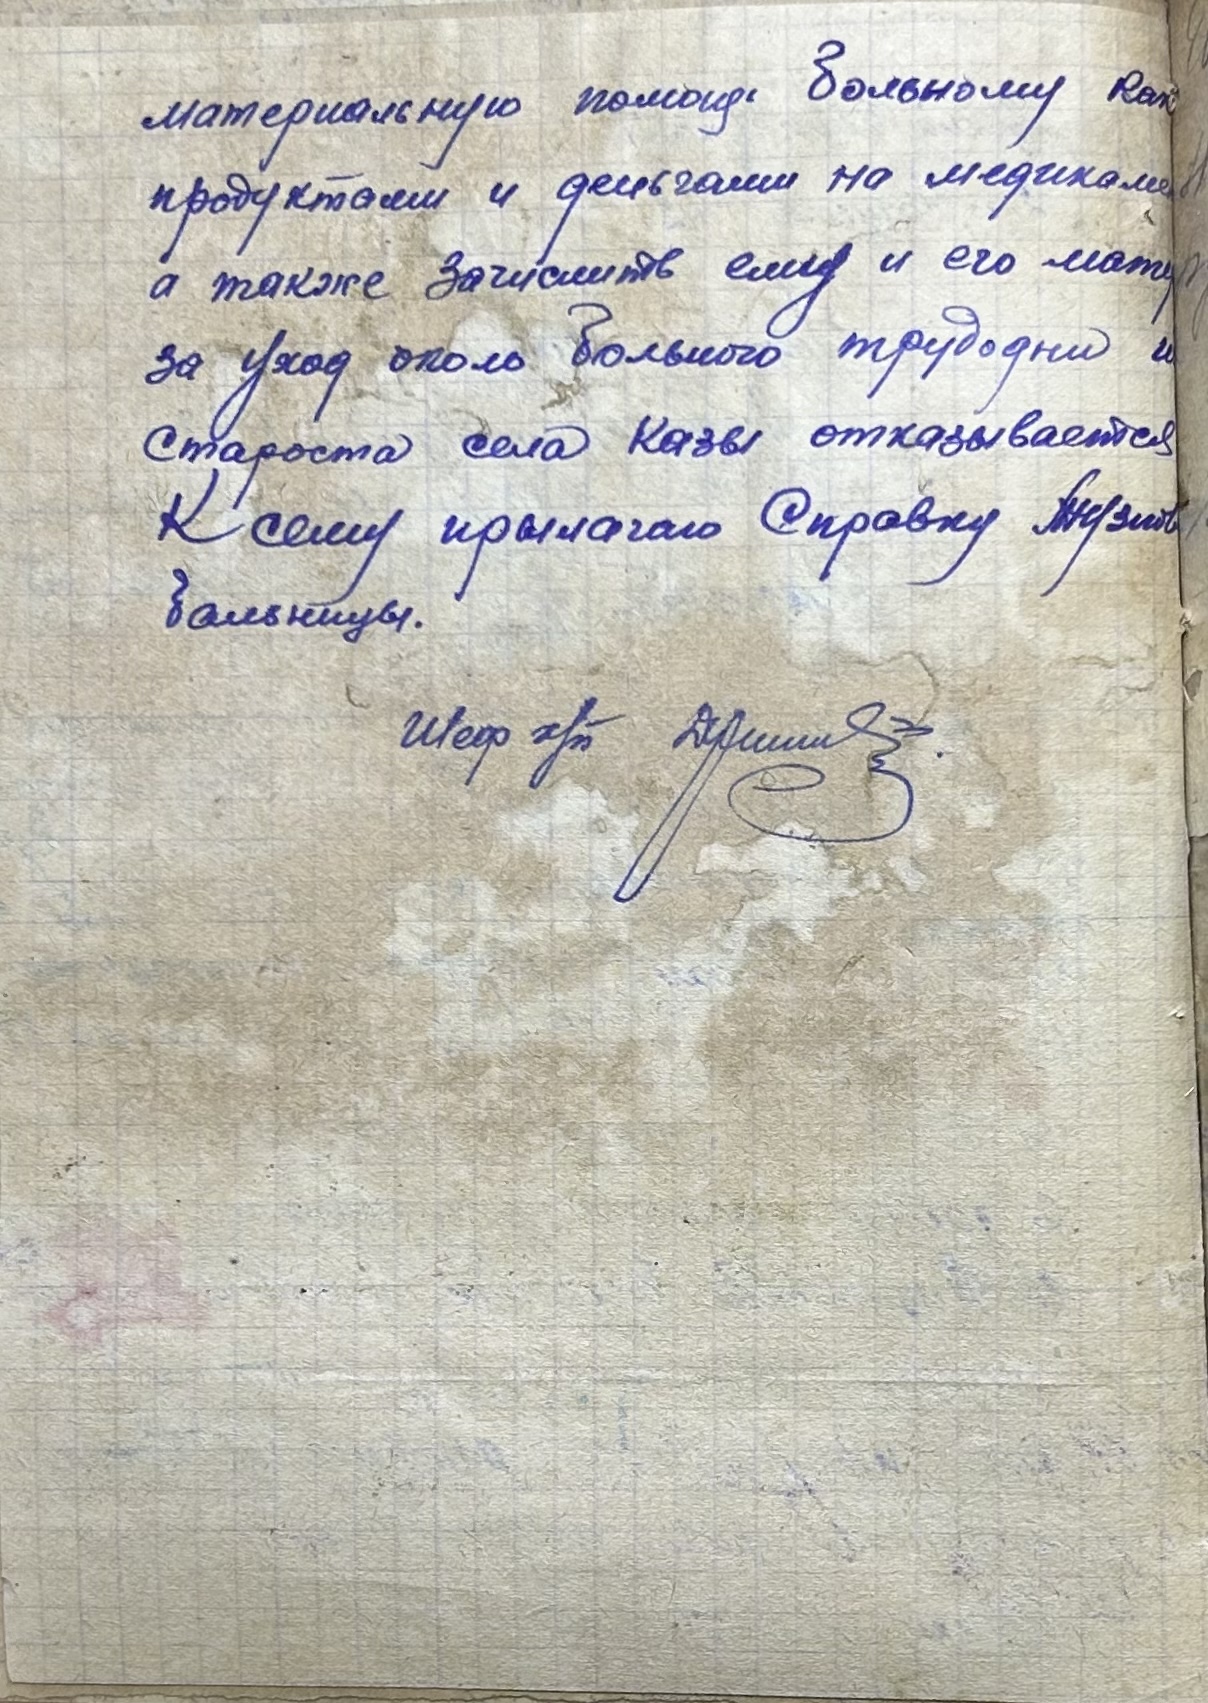 материальную помощь больному как
продуктами и деньгами на медикаме
а также зачислить ему и его мате
за уход около больного трудодни и
Староста села Казы отказывается
К сему прылагаю Справку
бальницы.
Шеф